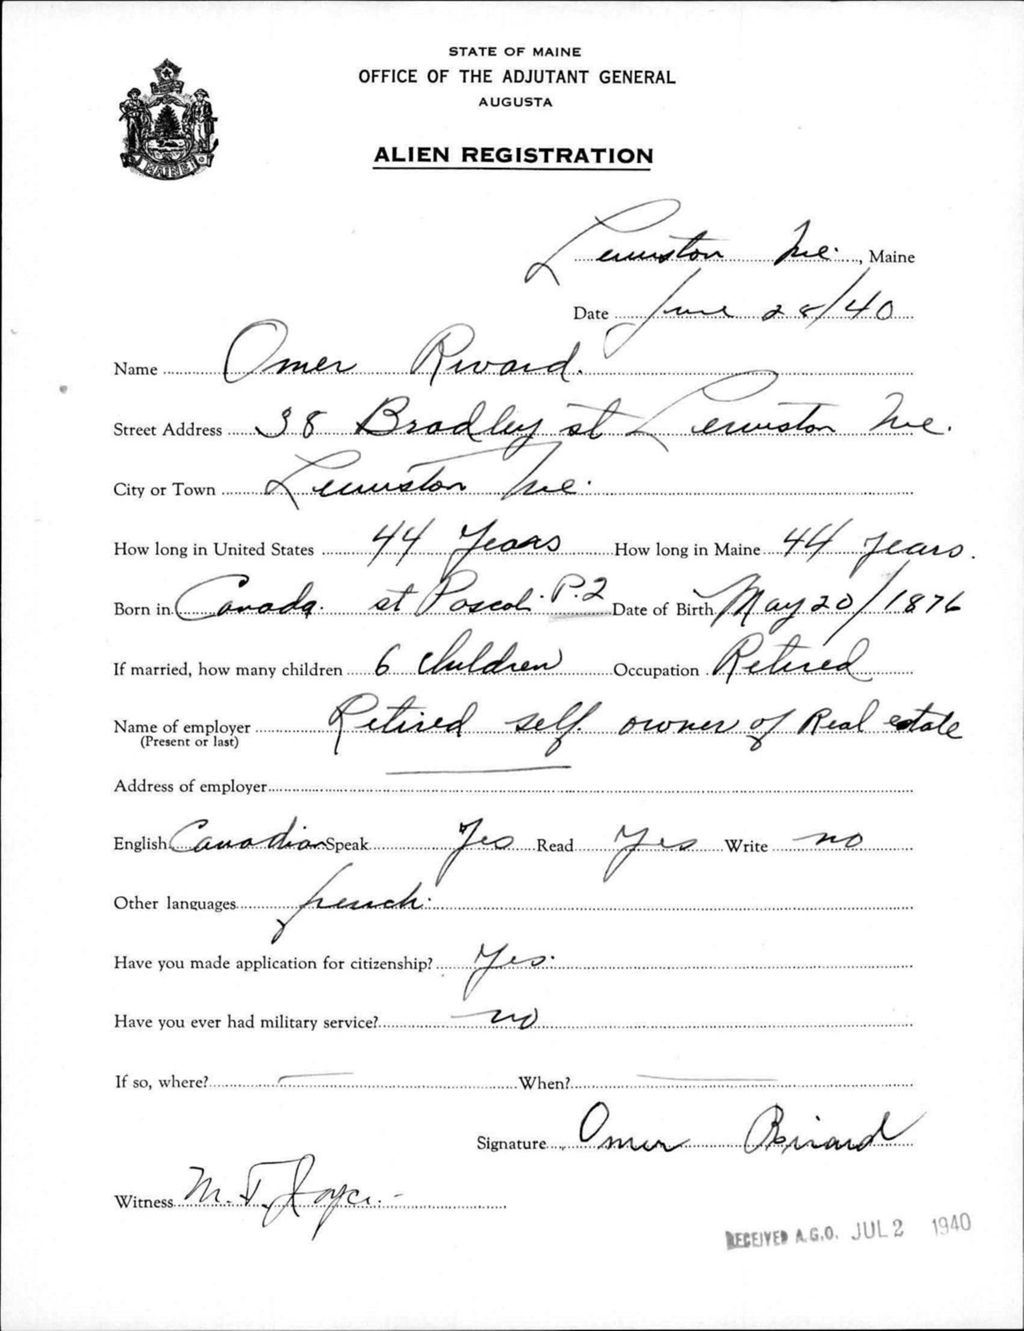 STATE OF MAINE
OFFICE OF THE ADJUTANT GENERAL
AUGUSTA
ALIEN REGISTRATION
MAINE
Lewiston Me. , Maine
Date June 28/40
Name Omer Rivard.
Street Address 38 Bradley st Lewiston Me.
City or Town Lewiston Me.
How long in United States 44 Years How long in Maine 44 years.
Born in Canada. st Pascal. P.2 Date of Birth May 20/1876
If married, how many children 6 children Occupation Retired
Name of employer Retired self. owner of Real estate
(Present or last)
Address of employer
English Canadian Speak Yes Read Yes Write no
Other languages french.
Have you made application for citizenship? Yes.
Have you ever had military service? no
If so, where? When?
Signature Omer
Witness M. T. Joyce.
RECEIVED A.G.O. JUL 2 1940